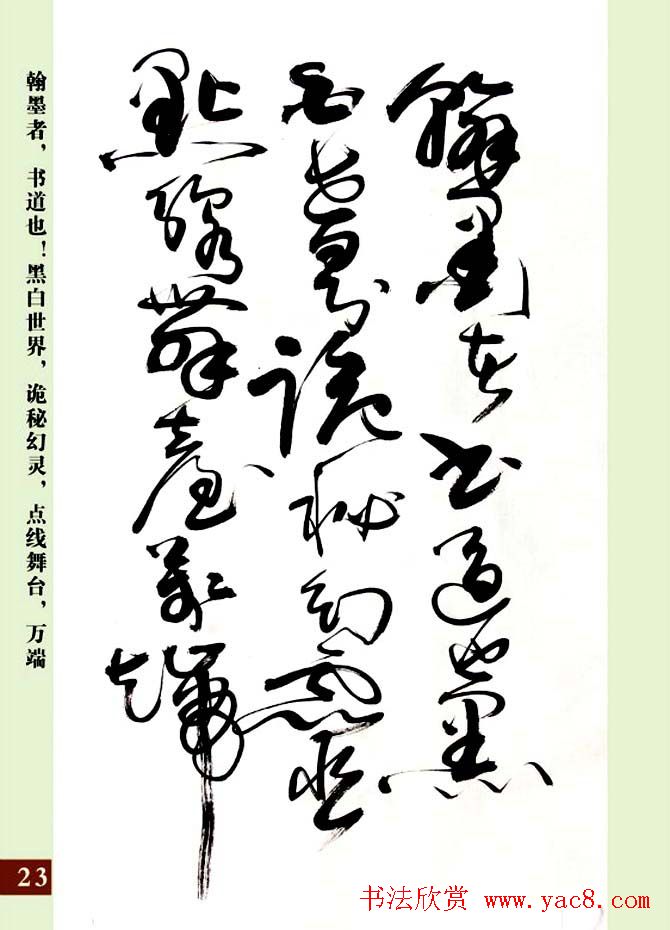 翰墨者书道也黑
白世界诡秘幻灵
點线舞臺万端
翰墨者，书道也！黑白世界，诡秘幻灵，点线舞台，万端
23
书法欣赏 www.yac8.com